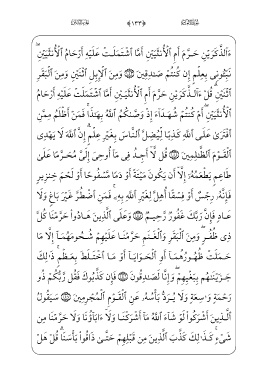 ءَآلذَّكَرَيْنِ حَرَّمَ أَمِ ٱلْأُنثَيَيْنِ أَمَّا ٱشْتَمَلَتْ عَلَيْهِ أَرْحَامُ ٱلْأُنثَيَيْنِ
نَبِّـُٔونِى بِعِلْمٍ إِن كُنتُمْ صَـٰدِقِينَ ١٤٣ وَمِنَ ٱلْإِبِلِ ٱثْنَيْنِ وَمِنَ ٱلْبَقَرِ
ٱثْنَيْنِ قُلْ ءَآلذَّكَرَيْنِ حَرَّمَ أَمِ ٱلْأُنثَيَيْنِ أَمَّا ٱشْتَمَلَتْ عَلَيْهِ أَرْحَامُ
ٱلْأُنثَيَيْنِ أَمْ كُنتُمْ شُهَدَآءَ إِذْ وَصَّىٰكُمُ ٱللَّهُ بِهَـٰذَا فَمَنْ أَظْلَمُ مِمَّنِ
ٱفْتَرَىٰ عَلَى ٱللَّهِ كَذِبًا لِّيُضِلَّ ٱلنَّاسَ بِغَيْرِ عِلْمٍ إِنَّ ٱللَّهَ لَا يَهْدِى
ٱلْقَوْمَ ٱلظَّـٰلِمِينَ ١٤٤ قُل لَّآ أَجِدُ فِى مَآ أُوحِىَ إِلَىَّ مُحَرَّمًا عَلَىٰ
طَاعِمٍ يَطْعَمُهُۥٓ إِلَّآ أَن يَكُونَ مَيْتَةً أَوْ دَمًا مَّسْفُوحًا أَوْ لَحْمَ خِنزِيرٍ
فَإِنَّهُۥ رِجْسٌ أَوْ فِسْقًا أُهِلَّ لِغَيْرِ ٱللَّهِ بِهِۦ فَمَنِ ٱضْطُرَّ غَيْرَ بَاغٍ وَلَا
عَادٍ فَإِنَّ رَبَّكَ غَفُورٌ رَّحِيمٌ ١٤٥ وَعَلَى ٱلَّذِينَ هَادُوا۟ حَرَّمْنَا كُلَّ
ذِى ظُفُرٍ وَمِنَ ٱلْبَقَرِ وَٱلْغَنَمِ حَرَّمْنَا عَلَيْهِمْ شُحُومَهُمَآ إِلَّا مَا
حَمَلَتْ ظُهُورُهُمَآ أَوِ ٱلْحَوَايَآ أَوْ مَا ٱخْتَلَطَ بِعَظْمٍ ذَٰلِكَ
جَزَيْنَـٰهُم بِبَغْيِهِمْ وَإِنَّا لَصَـٰدِقُونَ ١٤٦ فَإِن كَذَّبُوكَ فَقُل رَّبُّكُمْ ذُو
رَحْمَةٍ وَٰسِعَةٍ وَلَا يُرَدُّ بَأْسُهُۥ عَنِ ٱلْقَوْمِ ٱلْمُجْرِمِينَ ١٤٧ سَيَقُولُ
ٱلَّذِينَ أَشْرَكُوا۟ لَوْ شَآءَ ٱللَّهُ مَآ أَشْرَكْنَا وَلَآ ءَابَآؤُنَا وَلَا حَرَّمْنَا مِن
شَىْءٍ كَذَٰلِكَ كَذَّبَ ٱلَّذِينَ مِن قَبْلِهِمْ حَتَّىٰ ذَاقُوا۟ بَأْسَنَا قُلْ هَلْ